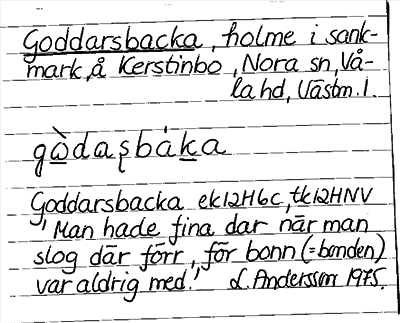 Goddarsbacka, holme i sank-
mark, å Kerstinbo, Nora sn, Vå-
la hd, Västm. l.
gò̱daʂbáḵa
Goddarsbacka ek12H6c, tk12HNV
"Man hade fina dar när man
slog där förr, för bonn (=bonden)
var aldrig med." L. Andersson 1975.